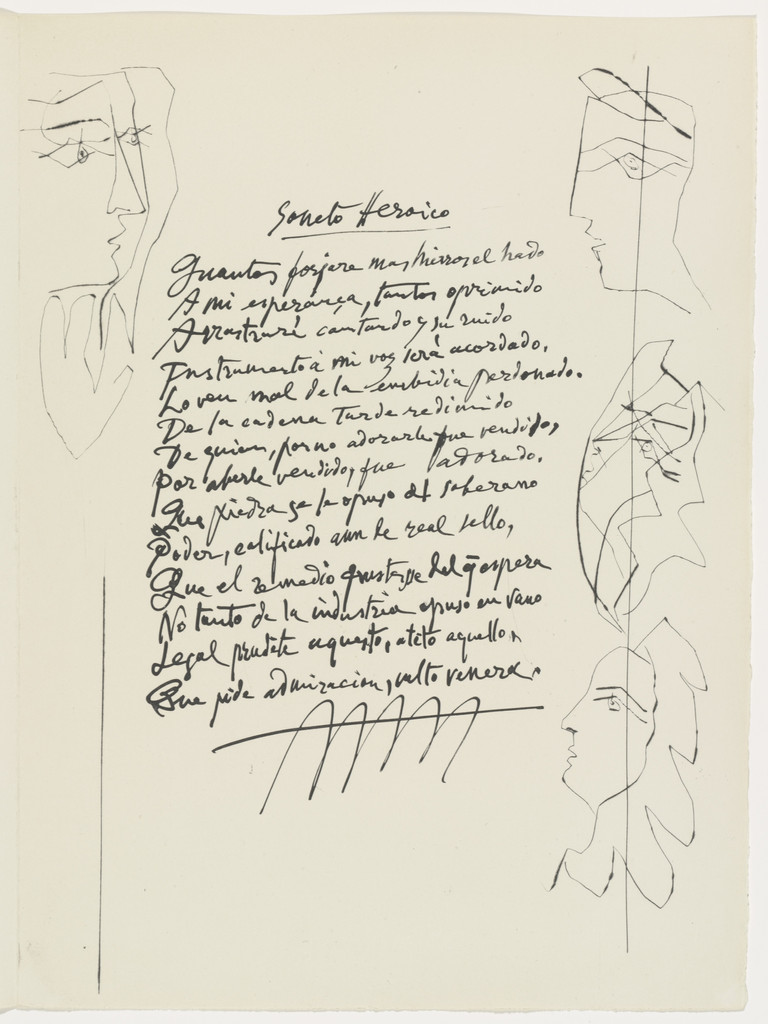 Soneto Heroico
Quantos forjare mas hierros el hado
A mi esperança, tantos oprimido
Arrastraré cantando, y su ruido
Instrumento á mi voz será acordado.
Joven mal de la embidia perdonado.
De la cadena tarde redimido
De quien, por no adorarle fue vendido,
Por aberle vendido, fue adorado.
Que piedra se le opuso al soberano
Poder, calificado aun de real sello,
Que el remedio frustasse del q̄ espera
No tanto de la industria opuso en vano
Legal prudēte aquesto, atēto aquello,
Que pide admiracion, culto venera.